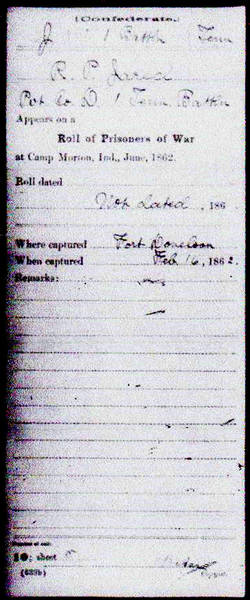 (Confederate.)
J 1 Battn Tenn
R. P. Jared
Pvt Co. D. 1 Tenn. Battn
Appears on a
Roll of Prisoners of War
at Camp Morton, Ind., June, 1862.
Roll dated
Not dated, 186
Where captured Fort Donelson
When captured Feb 16, 1862.
Remarks:
10; sheet
(639b)